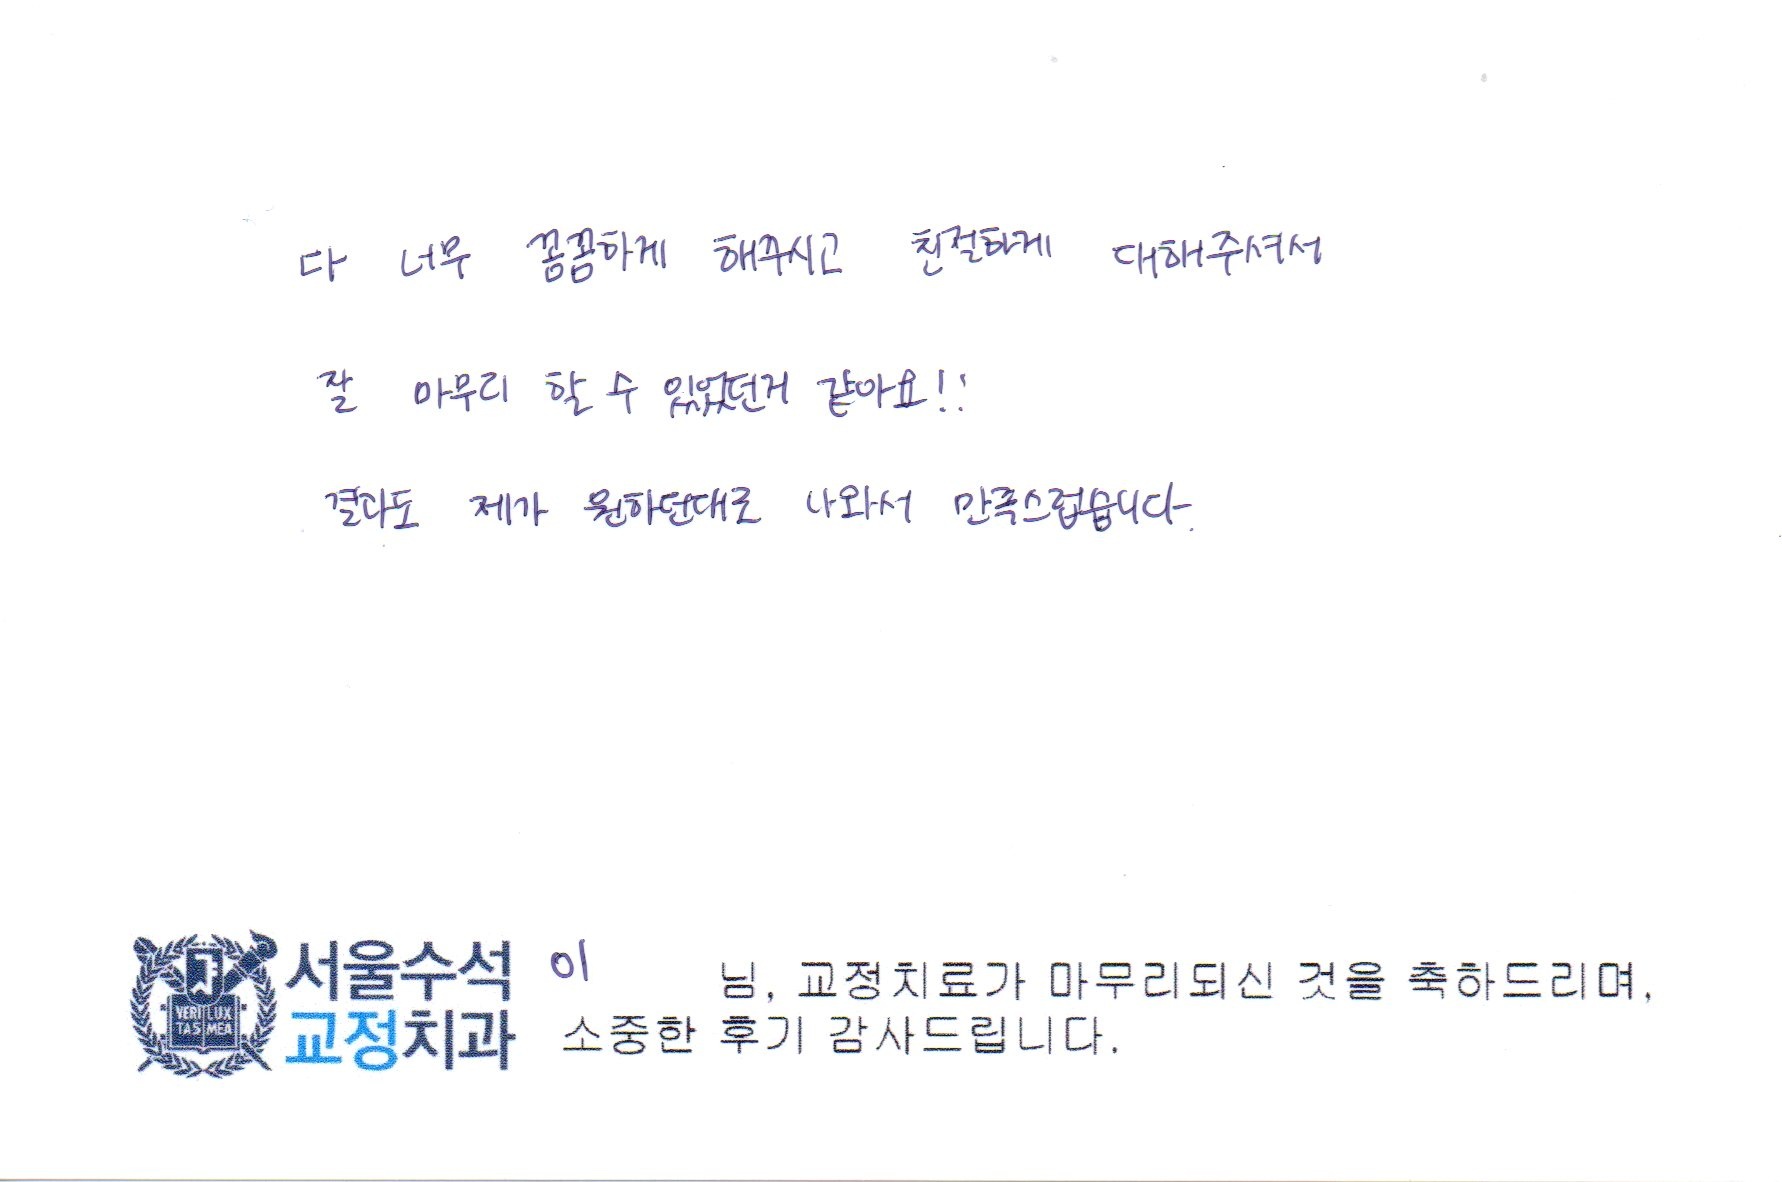 다 너무 꼼꼼하게 해주시고 친절하게 대해주셔서
잘 마무리 할 수 있었던거 같아요!!
결과도 제가 원하던대로 나와서 만족스럽습니다.
VERI LUX
TAS MEA
서울수석
교정치과
이 님, 교정치료가 마무리되신 것을 축하드리며,
소중한 후기 감사드립니다.